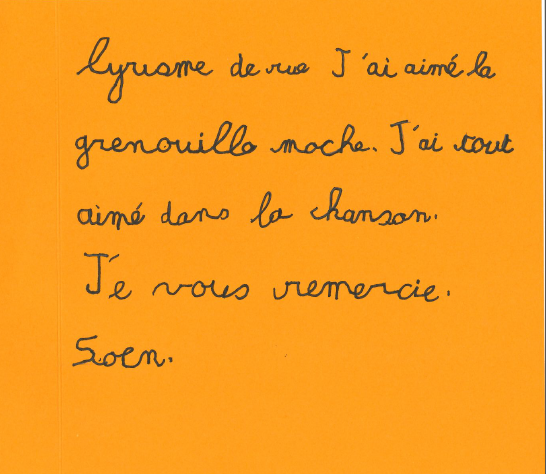 lyrisme de rue J'ai aimé la
grenouille moche. J'ai tout
aimé dans la chanson.
J'e vous remercie.
Soen.